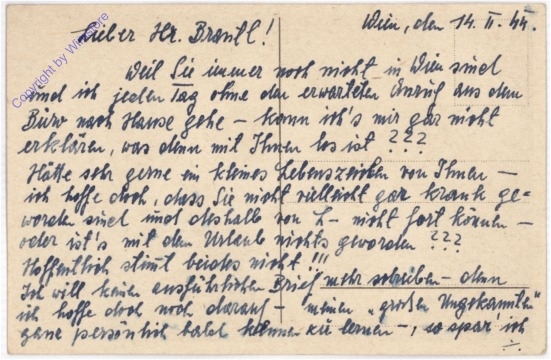 Wien, den 14. II. 44.
Lieber Hr. Brantl!
Weil Sie immer noch nicht in Wien sind
und ich jeden Tag ohne den erwarteten Anruf aus dem
Büro nach Hause gehe – kann ich's mir gar nicht
erklären, was denn mit Ihnen los ist ???
Hätte sehr gerne ein kleines Lebenszeichen von Ihnen –
ich hoffe doch, dass Sie nicht vielleicht gar krank ge=
worden sind und deshalb von L– nicht fort können –
oder ist's mit dem Urlaub nichts geworden ???
Hoffentlich stimmt beides nicht !!!
Ich will keinen ausführlichen Brief mehr schreiben – denn
ich hoffe doch noch darauf – meinen „großen Ungekannten"
ganz persönlich bald kennen zu lernen –, so spar' ich
Copyright by Wikamore